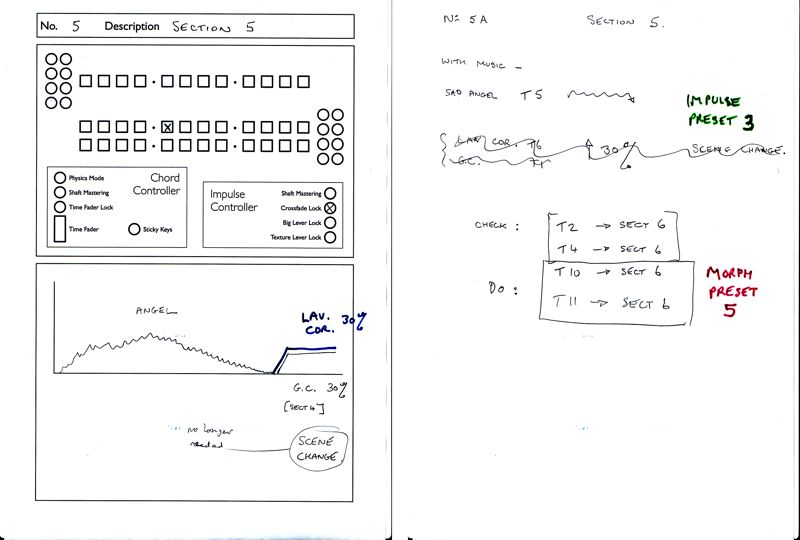 No. 5 Description SECTION 5
Physics Mode
Shaft Mastering
Time Fader Lock
Time Fader
Sticky Keys
Chord
Controller
Impulse
Controller
Shaft Mastering
Crossfade Lock
Big Lever Lock
Texture Lever Lock
ANGEL
LAV. 30%
COR.
G.C. 30%
[SECT 4]
no longer
needed
SCENE
CHANGE.
No 5A SECTION 5.
WITH MUSIC –
SAD ANGEL T5
IMPULSE
PRESET 3
LAV COR. T6 30% SCENE CHANGE.
G.C.
CHECK: T2 → SECT 6
T4 → SECT 6
DO: T10 → SECT 6
T11 → SECT 6
MORPH
PRESET
5